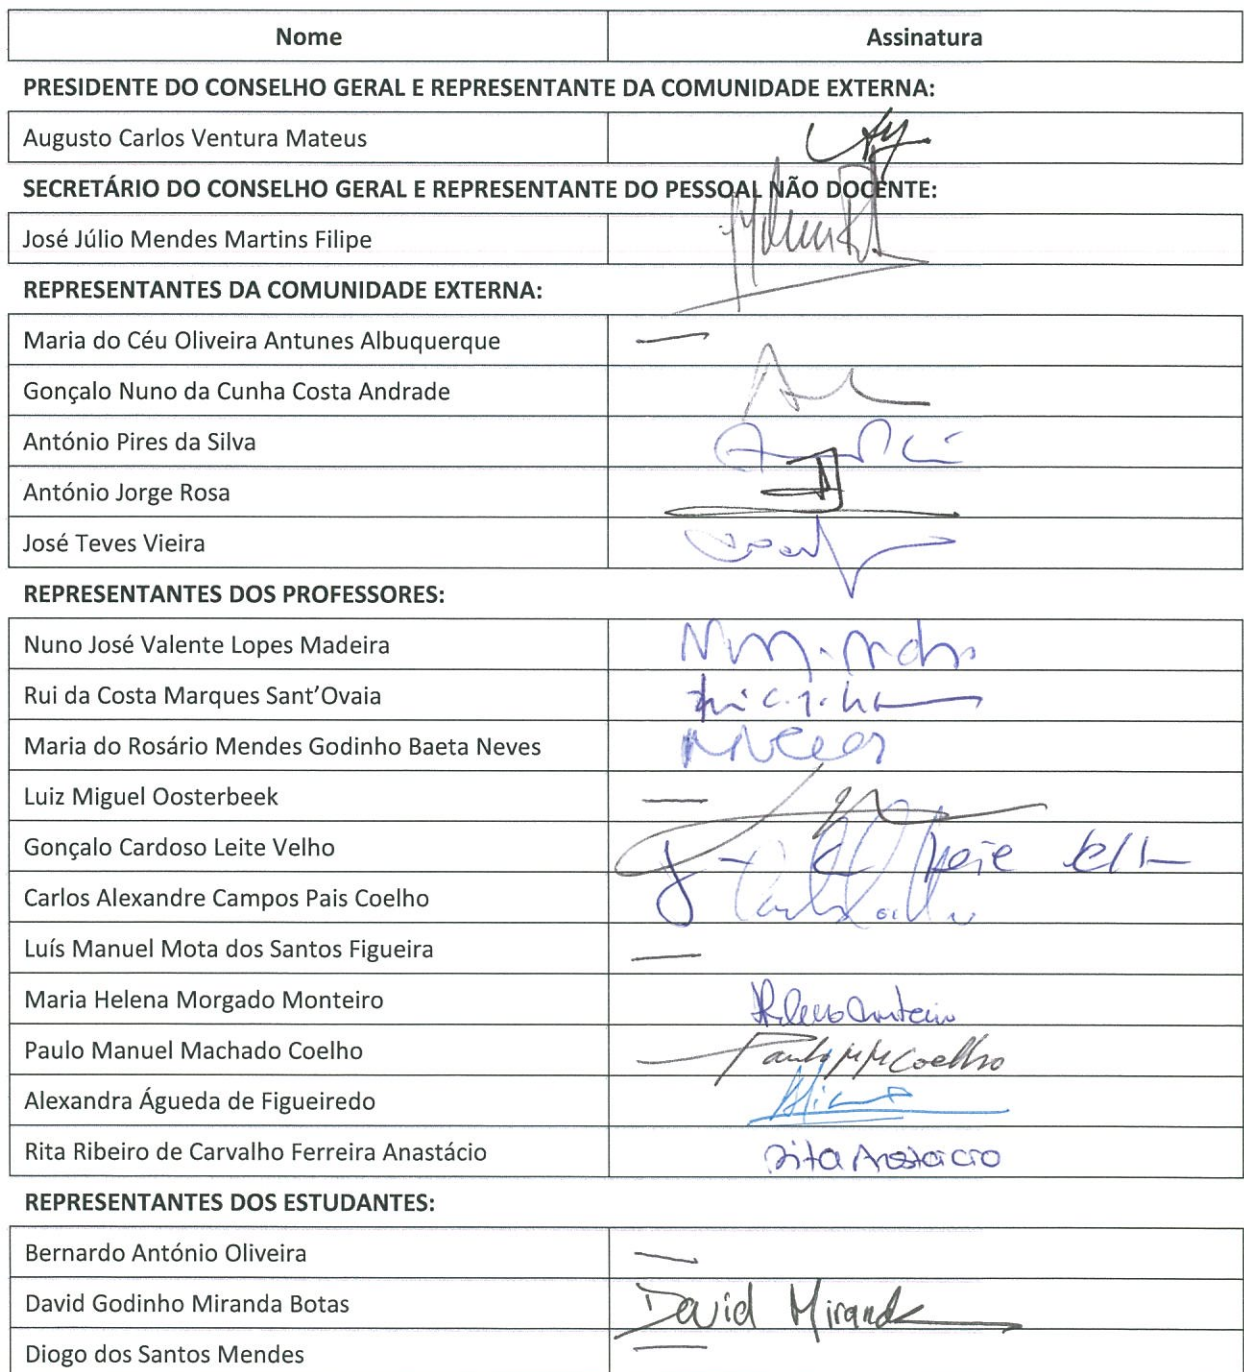 Nome Assinatura
PRESIDENTE DO CONSELHO GERAL E REPRESENTANTE DA COMUNIDADE EXTERNA:
Augusto Carlos Ventura Mateus
SECRETÁRIO DO CONSELHO GERAL E REPRESENTANTE DO PESSOAL NÃO DOCENTE:
José Júlio Mendes Martins Filipe
REPRESENTANTES DA COMUNIDADE EXTERNA:
Maria do Céu Oliveira Antunes Albuquerque —
Gonçalo Nuno da Cunha Costa Andrade
António Pires da Silva
António Jorge Rosa
José Teves Vieira
REPRESENTANTES DOS PROFESSORES:
Nuno José Valente Lopes Madeira
Rui da Costa Marques Sant'Ovaia
Maria do Rosário Mendes Godinho Baeta Neves
Luiz Miguel Oosterbeek —
Gonçalo Cardoso Leite Velho
Carlos Alexandre Campos Pais Coelho
Luís Manuel Mota dos Santos Figueira —
Maria Helena Morgado Monteiro
Paulo Manuel Machado Coelho Paulo MM Coelho
Alexandra Águeda de Figueiredo
Rita Ribeiro de Carvalho Ferreira Anastácio Rita Anastácio
REPRESENTANTES DOS ESTUDANTES:
Bernardo António Oliveira —
David Godinho Miranda Botas David Miranda
Diogo dos Santos Mendes —